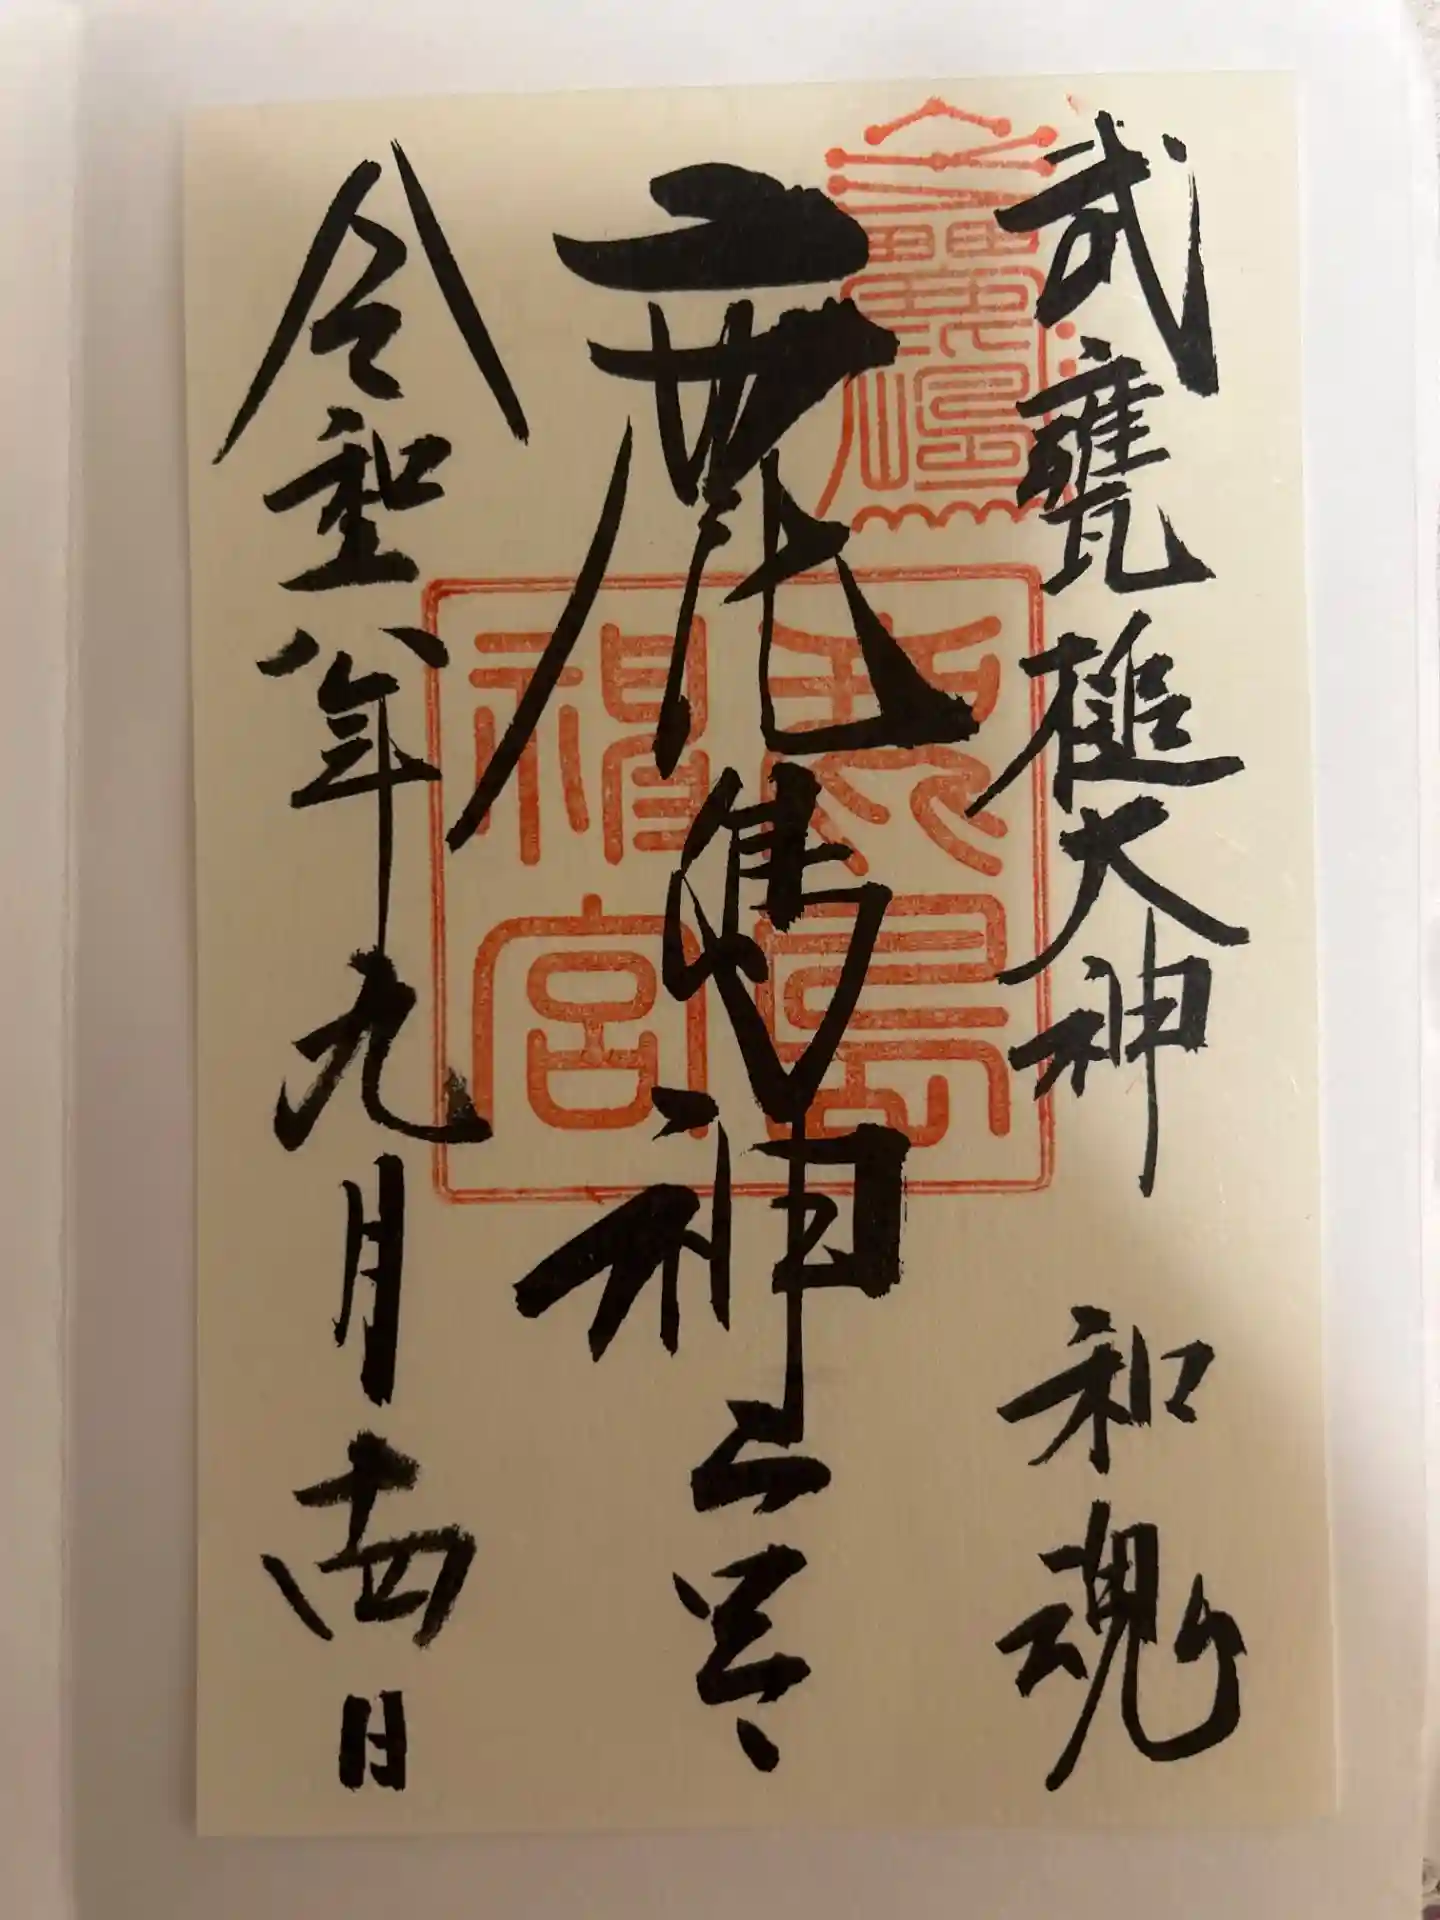 武甕槌大神 和魂
鹿島神宮
令和八年九月十四日
鹿島神宮